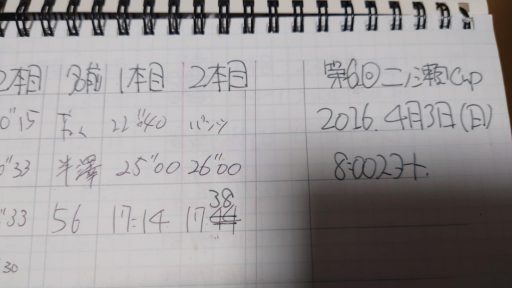 2本目 名前 1本目 2本目 第6回二ノ瀬Cup
0"15 22"40 パンツ 2016.4月3日(日)
0"33 半澤 25"00 26"00
"33 56 17:14 17 38
30